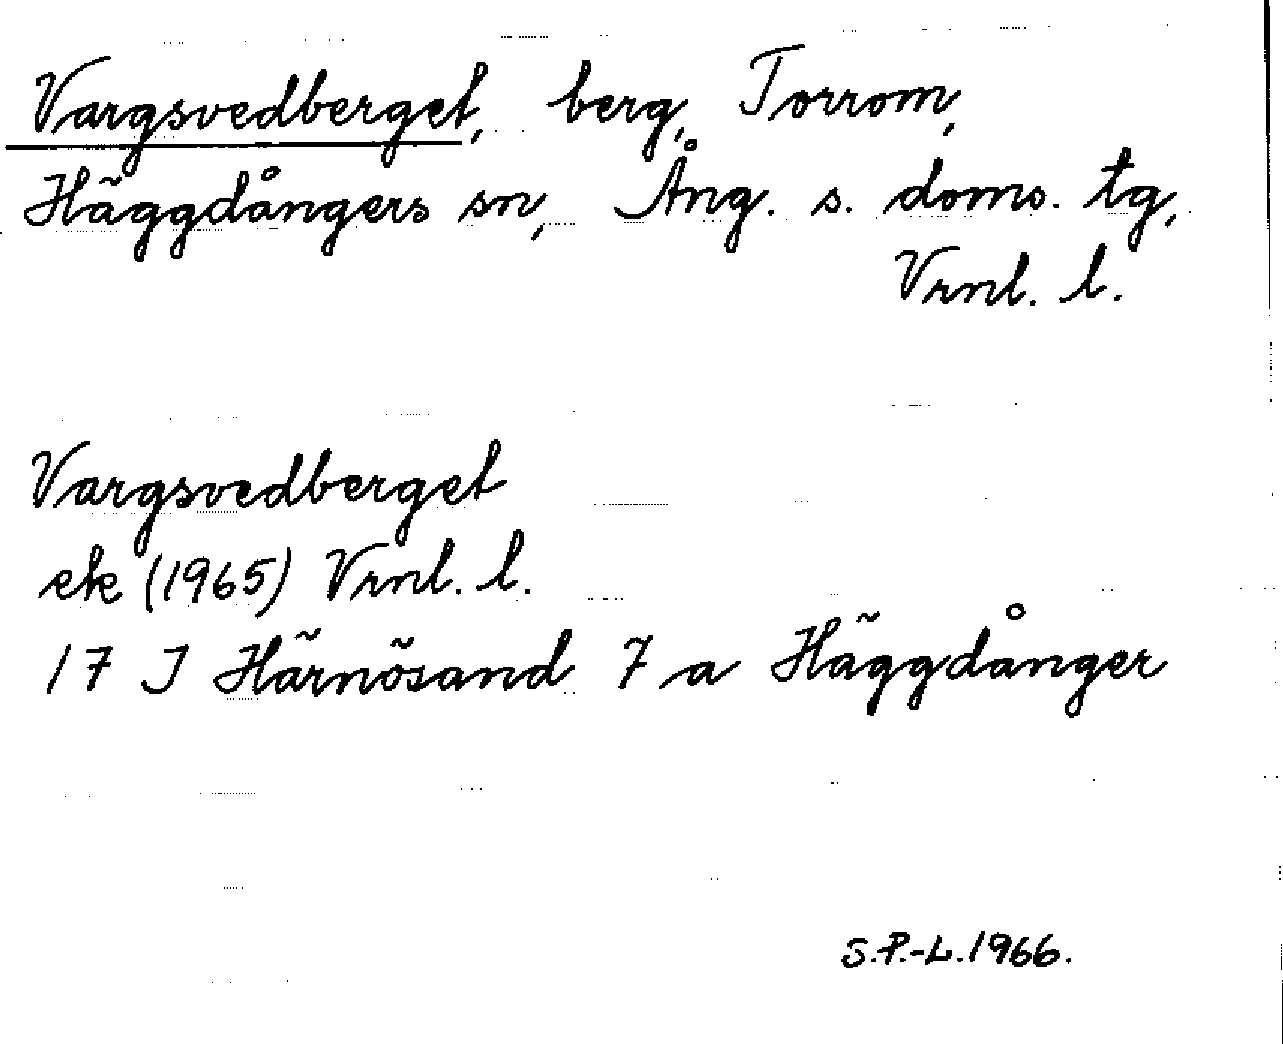 Vargsvedberget, berg, Torrom,
Häggdångers sn, Ång. s. doms. tg,
Vrnl. l.
Vargsvedberget
ek (1965) Vrnl. l.
17 I Härnösand 7 a Häggdånger
S.P.-L. 1966.